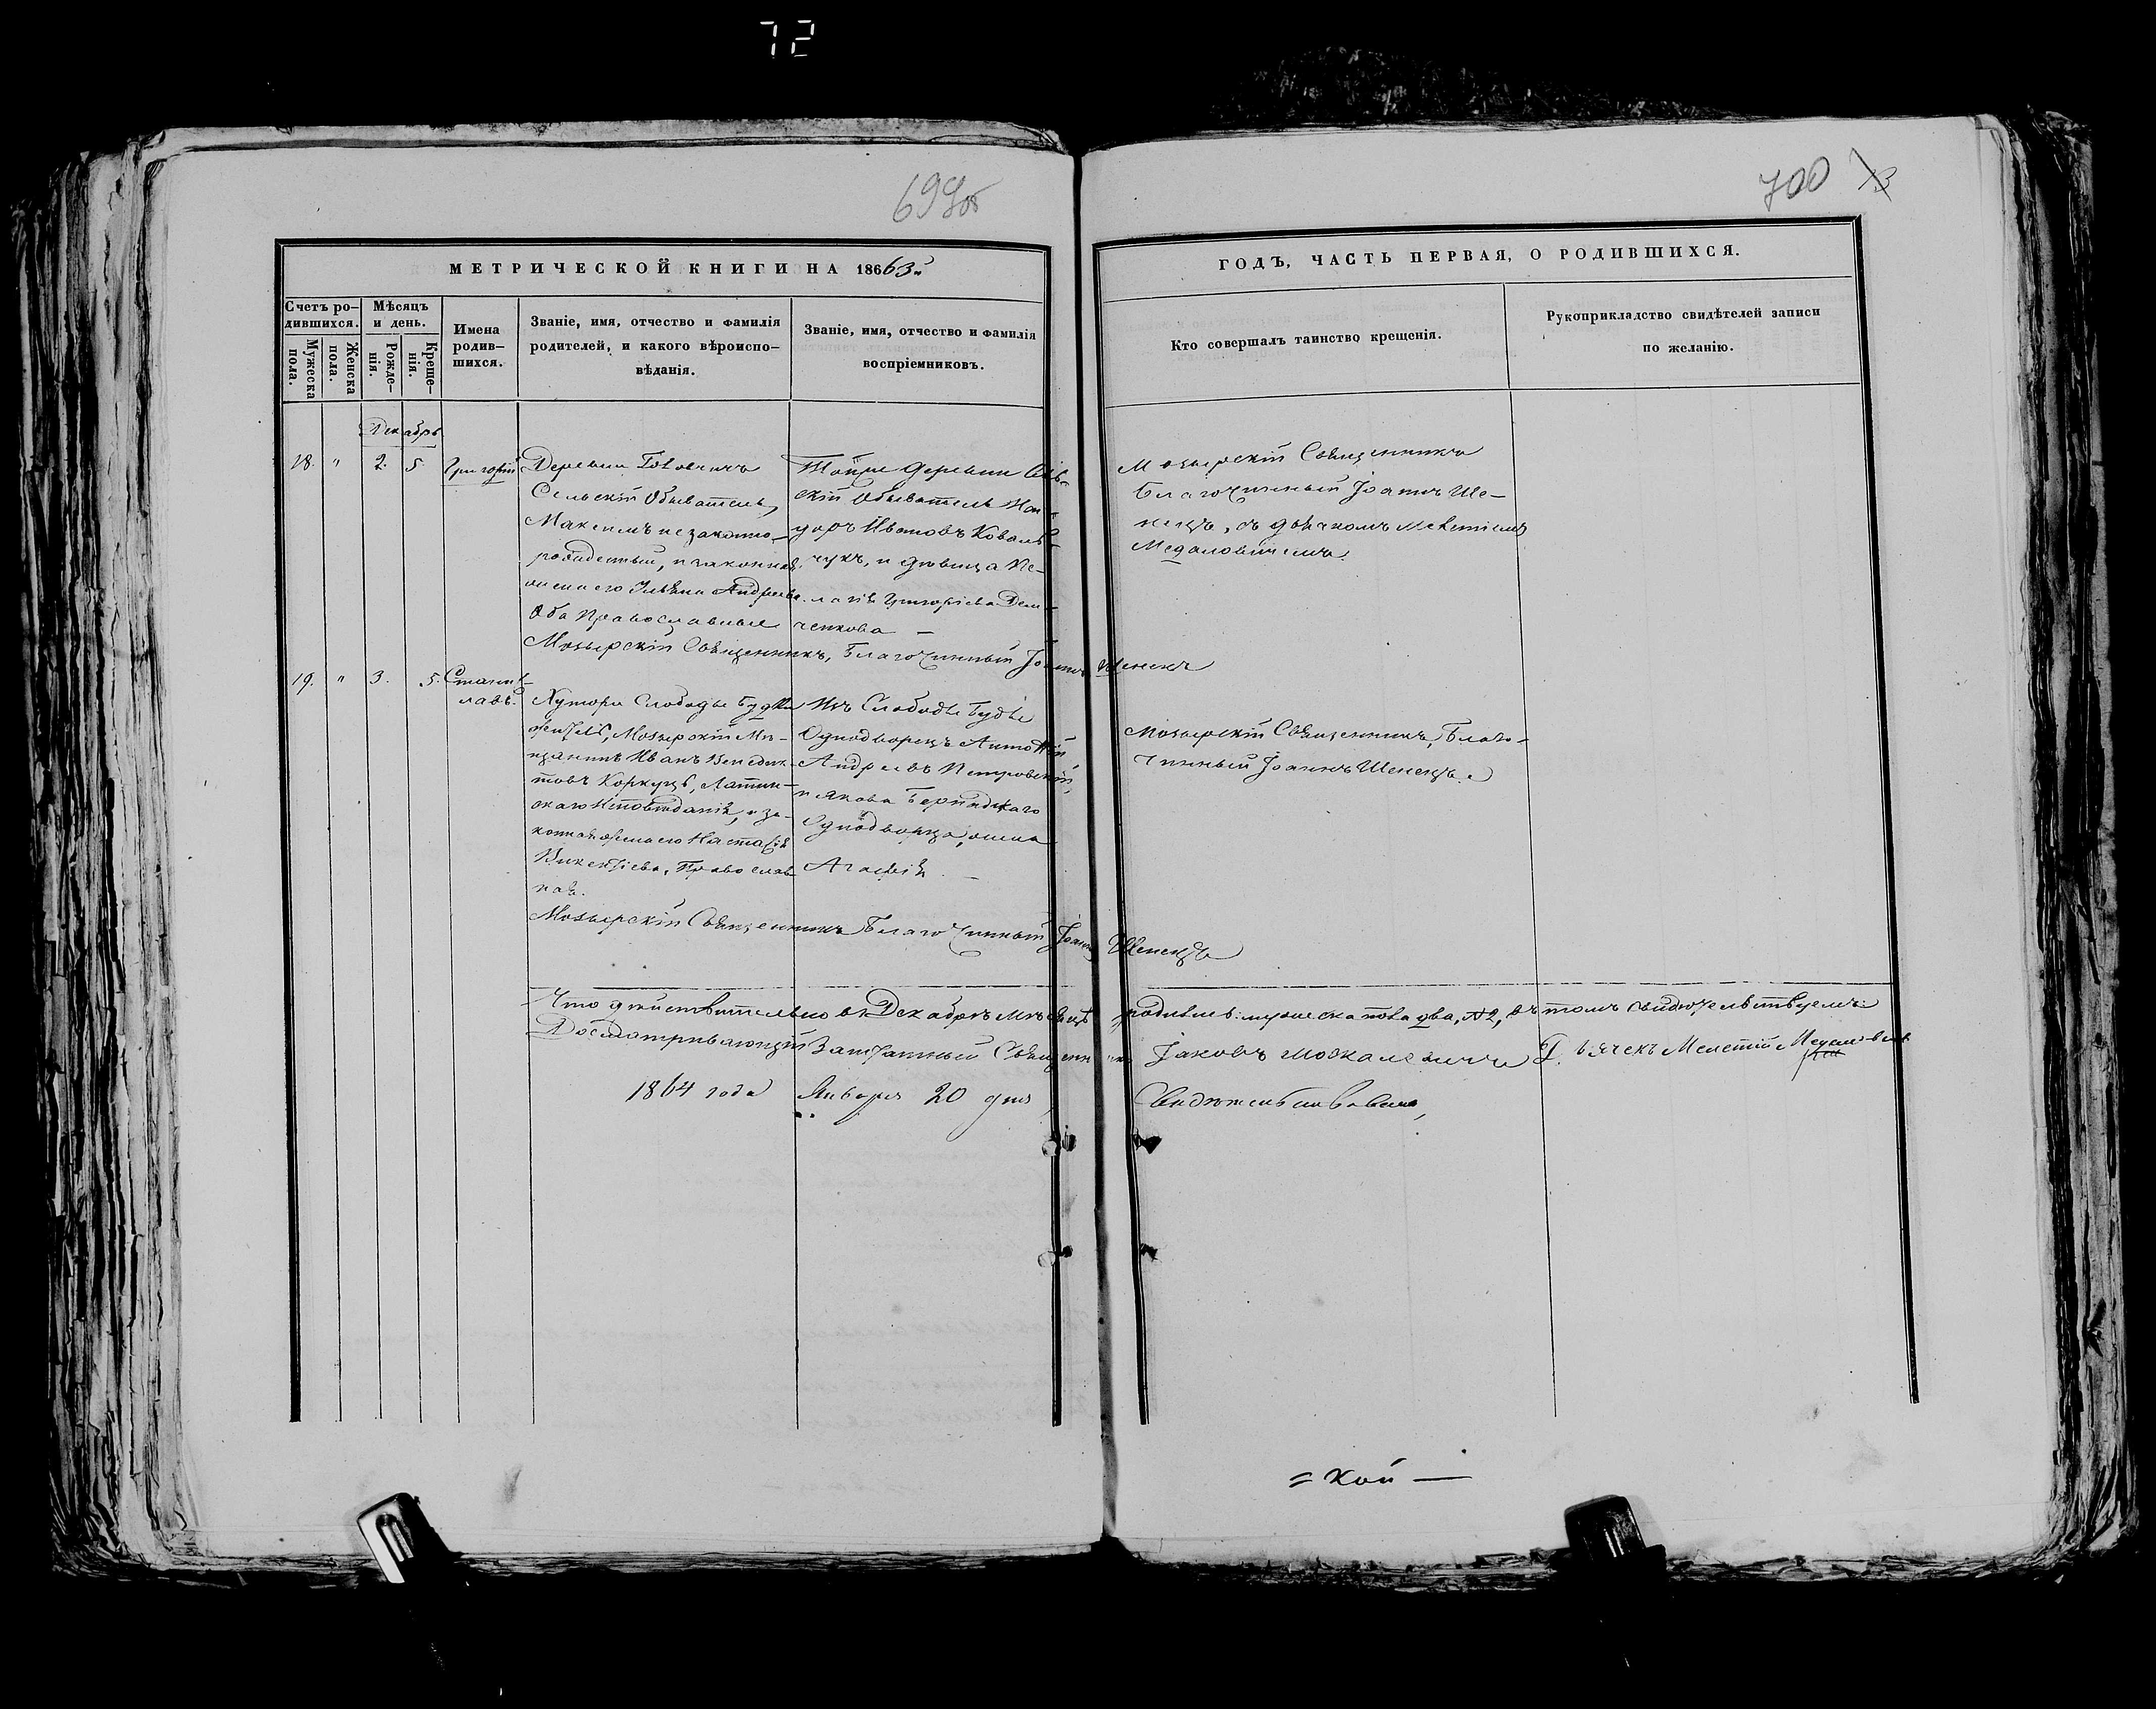 72
699об
700 73
МЕТРИЧЕСКОЙ КНИГИ НА 18663й
ГОДЪ, ЧАСТЬ ПЕРВАЯ, О РОДИВШИХСЯ.
Счетъ ро-
дившихся.
Мужеска
пола.
Женска
пола.
Мѣсяцъ
и день.
Рожде-
нія.
Креще-
нія.
Имена
родив-
шихся.
Званіе, имя, отчество и фамилія
родителей, и какого вѣроиспо-
вѣданія.
Званіе, имя, отчество и фамилія
воспріемниковъ.
Кто совершалъ таинство крещенія.
Рукоприкладство свидѣтелей записи
по желанію.
Декабрь
18. " 2. 5. Григорій
Деревни
Сельскій Обыватель,
Максимъ незаконно-
рожденный, и законная
жена его Андреева
Оба Православные
Тойже деревни
скій Обыватель
Ивановъ Коваль-
чукъ, и дѣвица Пе-
лагія Григоріева Дем-
ченкова —
Мозырскій Священникъ
Благочинный Іоаннъ Ше-
нецъ, съ дьячкомъ Мелетіемъ
Медаловичемъ.
Мозырскій Священникъ, Благочинный Іоаннъ Шенецъ
19. " 3. 5. Станис-
лавъ.
Хутора Слободы Будки
житель, Мозырскій Мѣ-
щанинъ Иванъ Венедик-
товъ Латин-
скаго Исповѣданія, и за-
конная жена его Настасія
Викентіева, Православ
ная.
Изъ Слободы Будки
Однодворецъ Антоній
Андреевъ Петровскій,
и Якова
Однодворца, жена
Агафія. —
Мозырскій Священникъ, Благо-
чинный Іоаннъ Шенецъ.
Мозырскій Священникъ Благочинный Іоаннъ Шенецъ
Что дѣйствительно въ Декабрѣ мѣсяцѣ родилось мужеска пола два, №2, въ томъ свидѣтельствуемъ:
Досматривающій Заштатный Священникъ Іаковъ Москалевичъ Дьячекъ Мелетій Медаловичъ
1864 года Января 20 дня Свидѣтельствовалъ,
= кой —